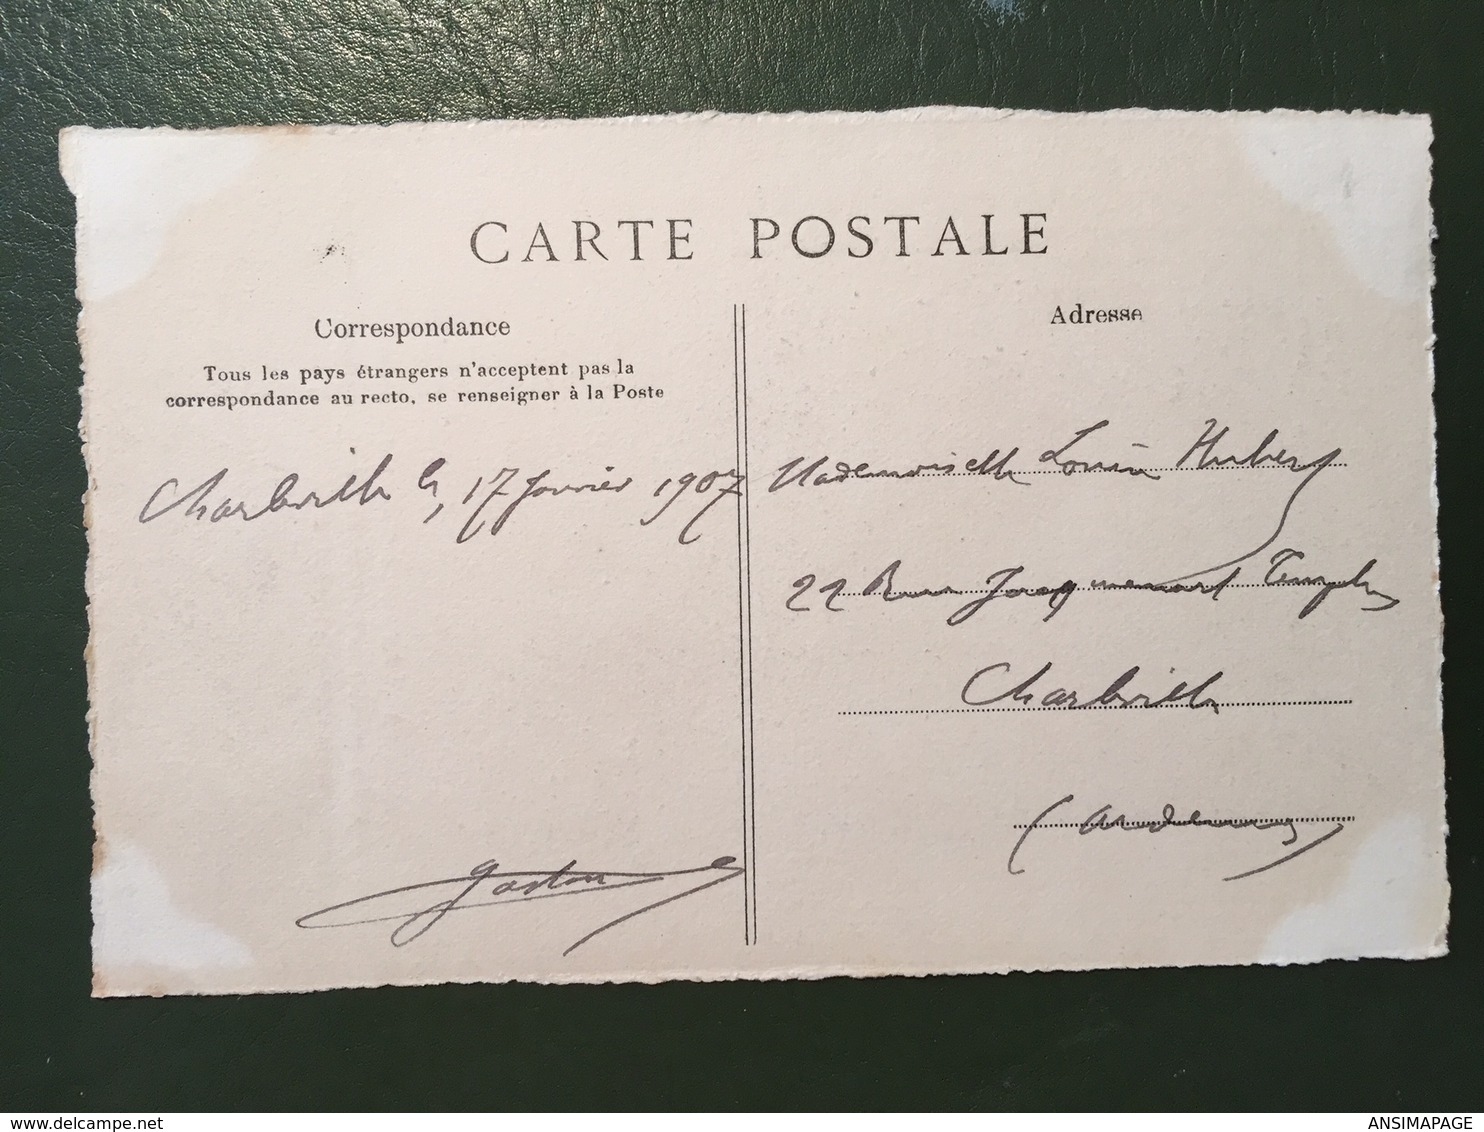 CARTE POSTALE
Correspondance
Tous les pays étrangers n'acceptent pas la
correspondance au recto, se renseigner à la Poste
Charleville le, 17 Janvier 1907
Gaston
Adresse
Mademoiselle Louise Hubert
22 Rue Jacquemart Templeux
Charleville
(Ardennes)
delcampe.net
ANSIMAPAGE